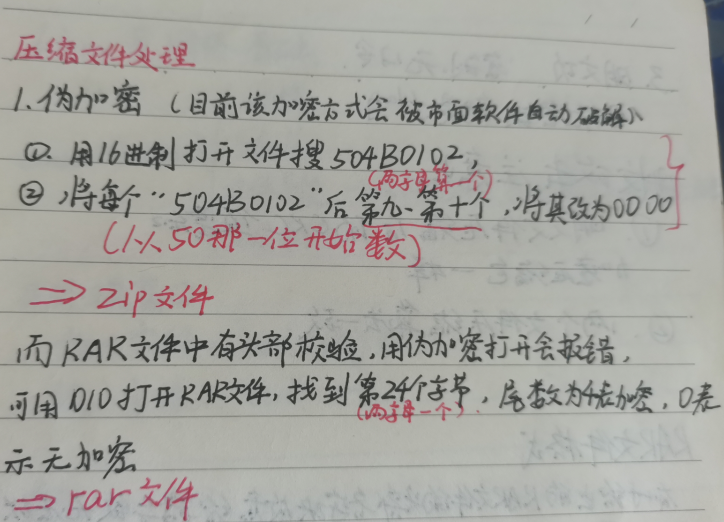 压缩文件处理
1.伪加密（目前该加密方式会被市面软件自动破解）
①.用16进制打开文件搜504B0102，
（两字算一个）
②将每个“504B0102”后第九、第十个，将其改为0000
（从50那一位开始数）
⇒ zip文件
而RAR文件中有头部校验，用伪加密打开会报错，
可用010打开RAR文件，找到第24个字节，尾数为4表加密，0表
（两字一个）
示无加密
⇒ rar文件